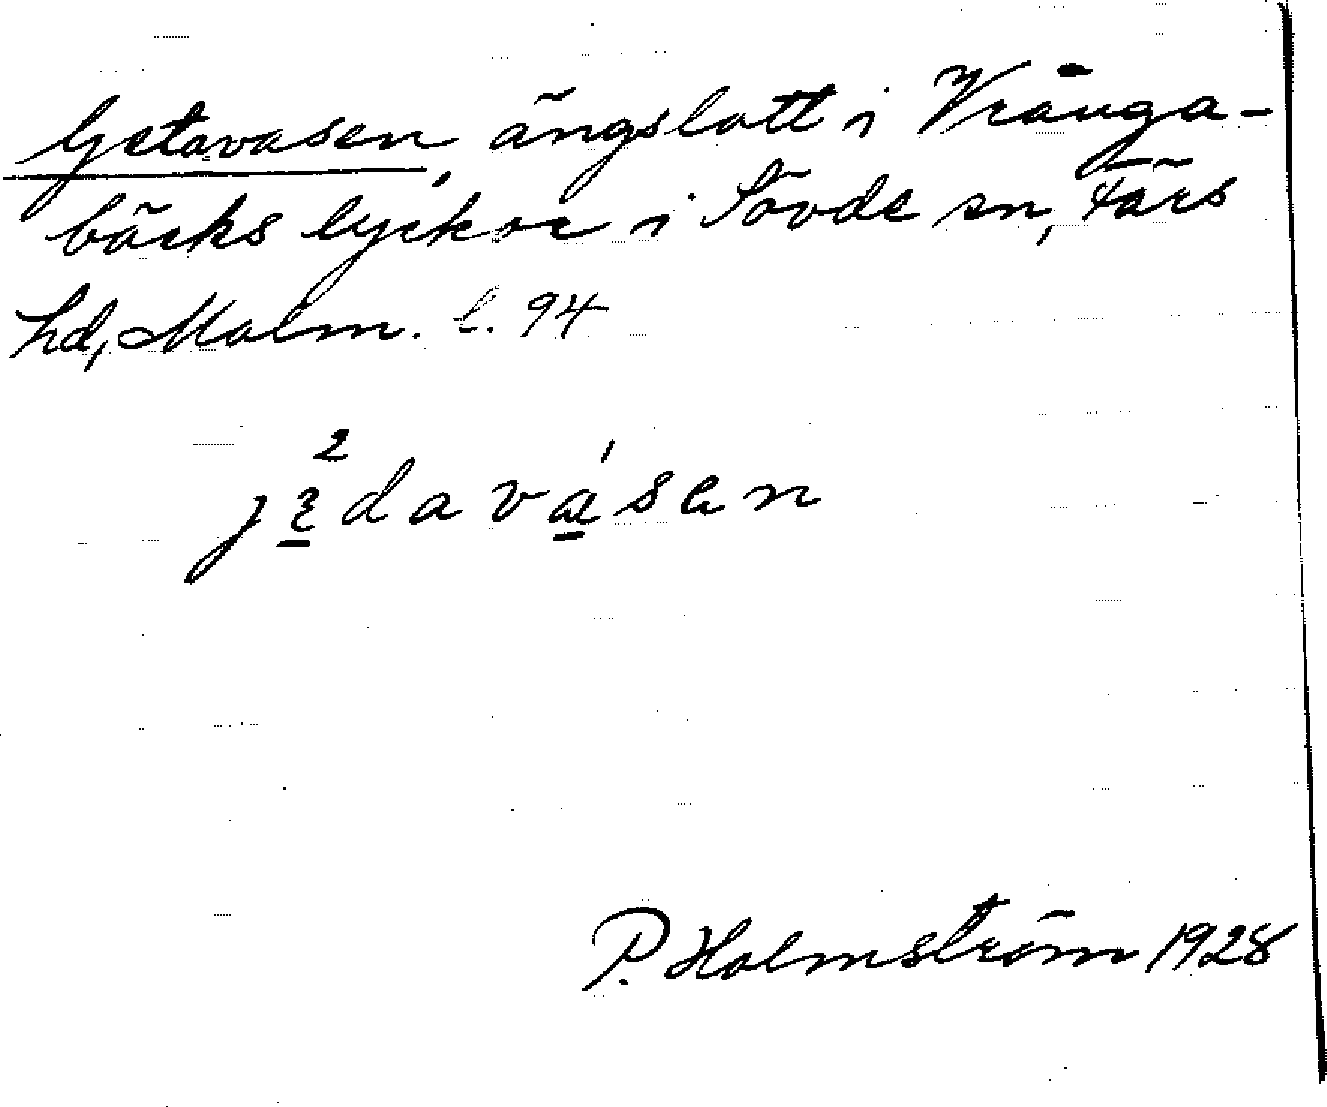 Getavasen, ängslott i Vränga-
bäcks lyckor i Sövde sn, Färs
hd, Malm. l. 94
P. Holmström 1928